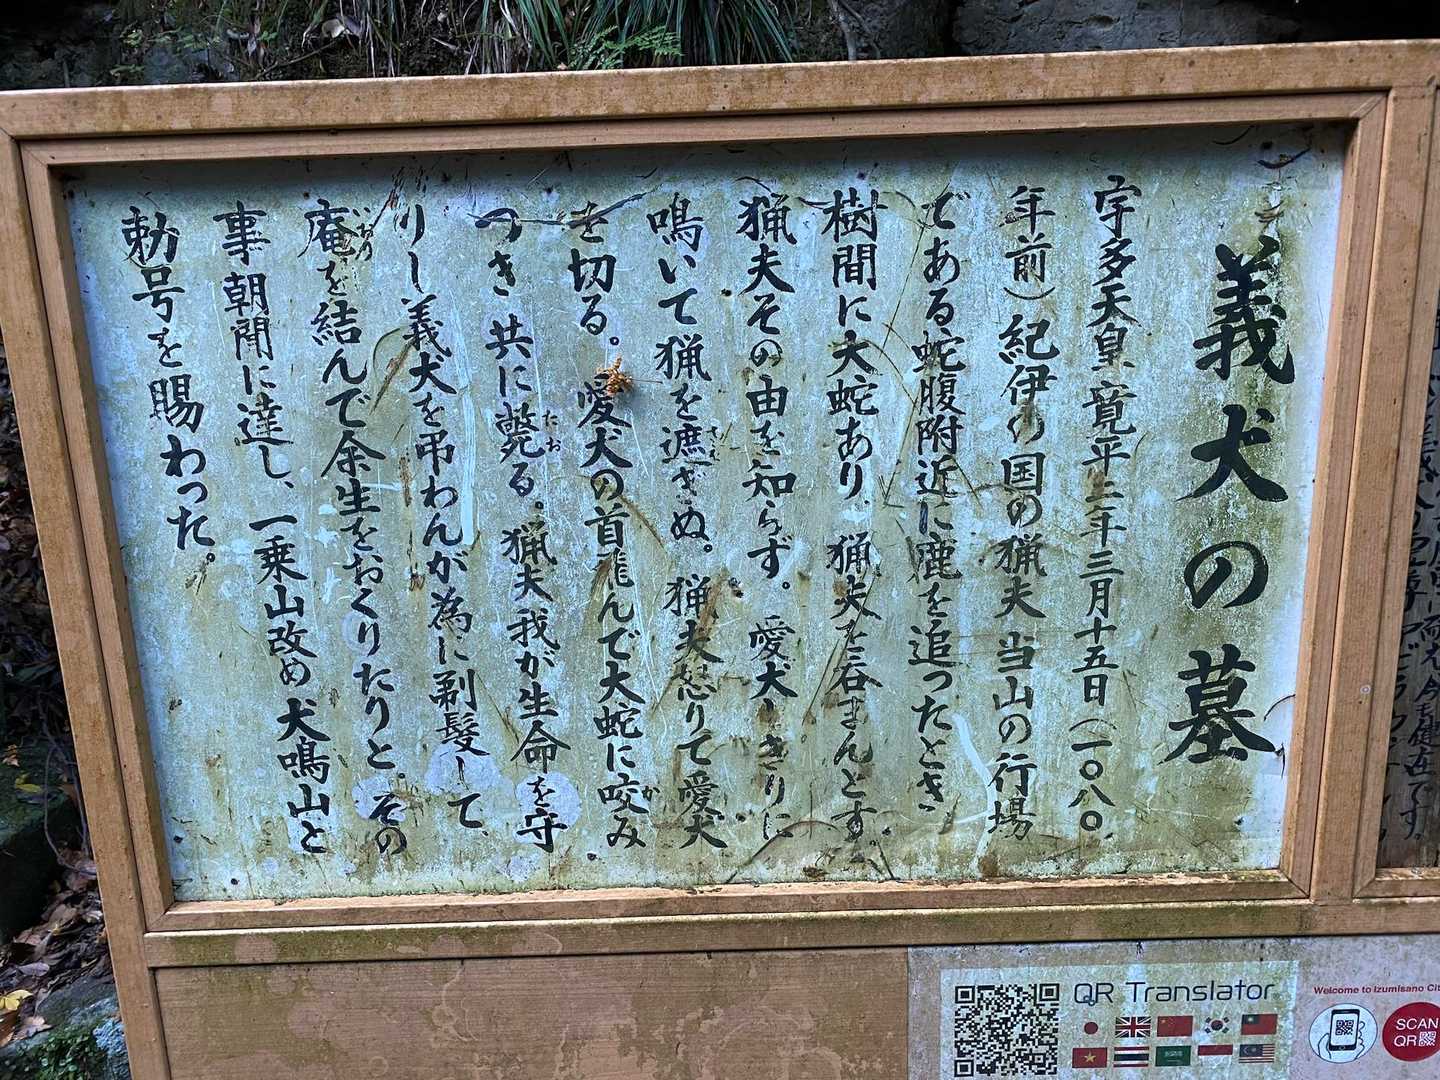 義犬の墓
宇多天皇寛平二年三月十五日(一〇八〇
年前)紀伊の国の猟夫当山の行場
である蛇腹附近に鹿を追ったとき
樹間に大蛇あり、猟夫を呑まんとす。
猟夫その由を知らず。愛犬しきりに
鳴いて猟を遮ぎぬ。猟夫怒りて愛犬
を切る。愛犬の首飛んで大蛇に咬み
か
つき共に斃る。猟夫我が生命を守
たお
りし義犬を弔わんが為に剃髪して、
庵を結んで余生をおくりたりと。その
いおり
事朝聞に達し、一乗山改め犬鳴山と
勅号を賜わった。
今も健在です。
QR Translator
Welcome to Izumisano
SCAN
QR